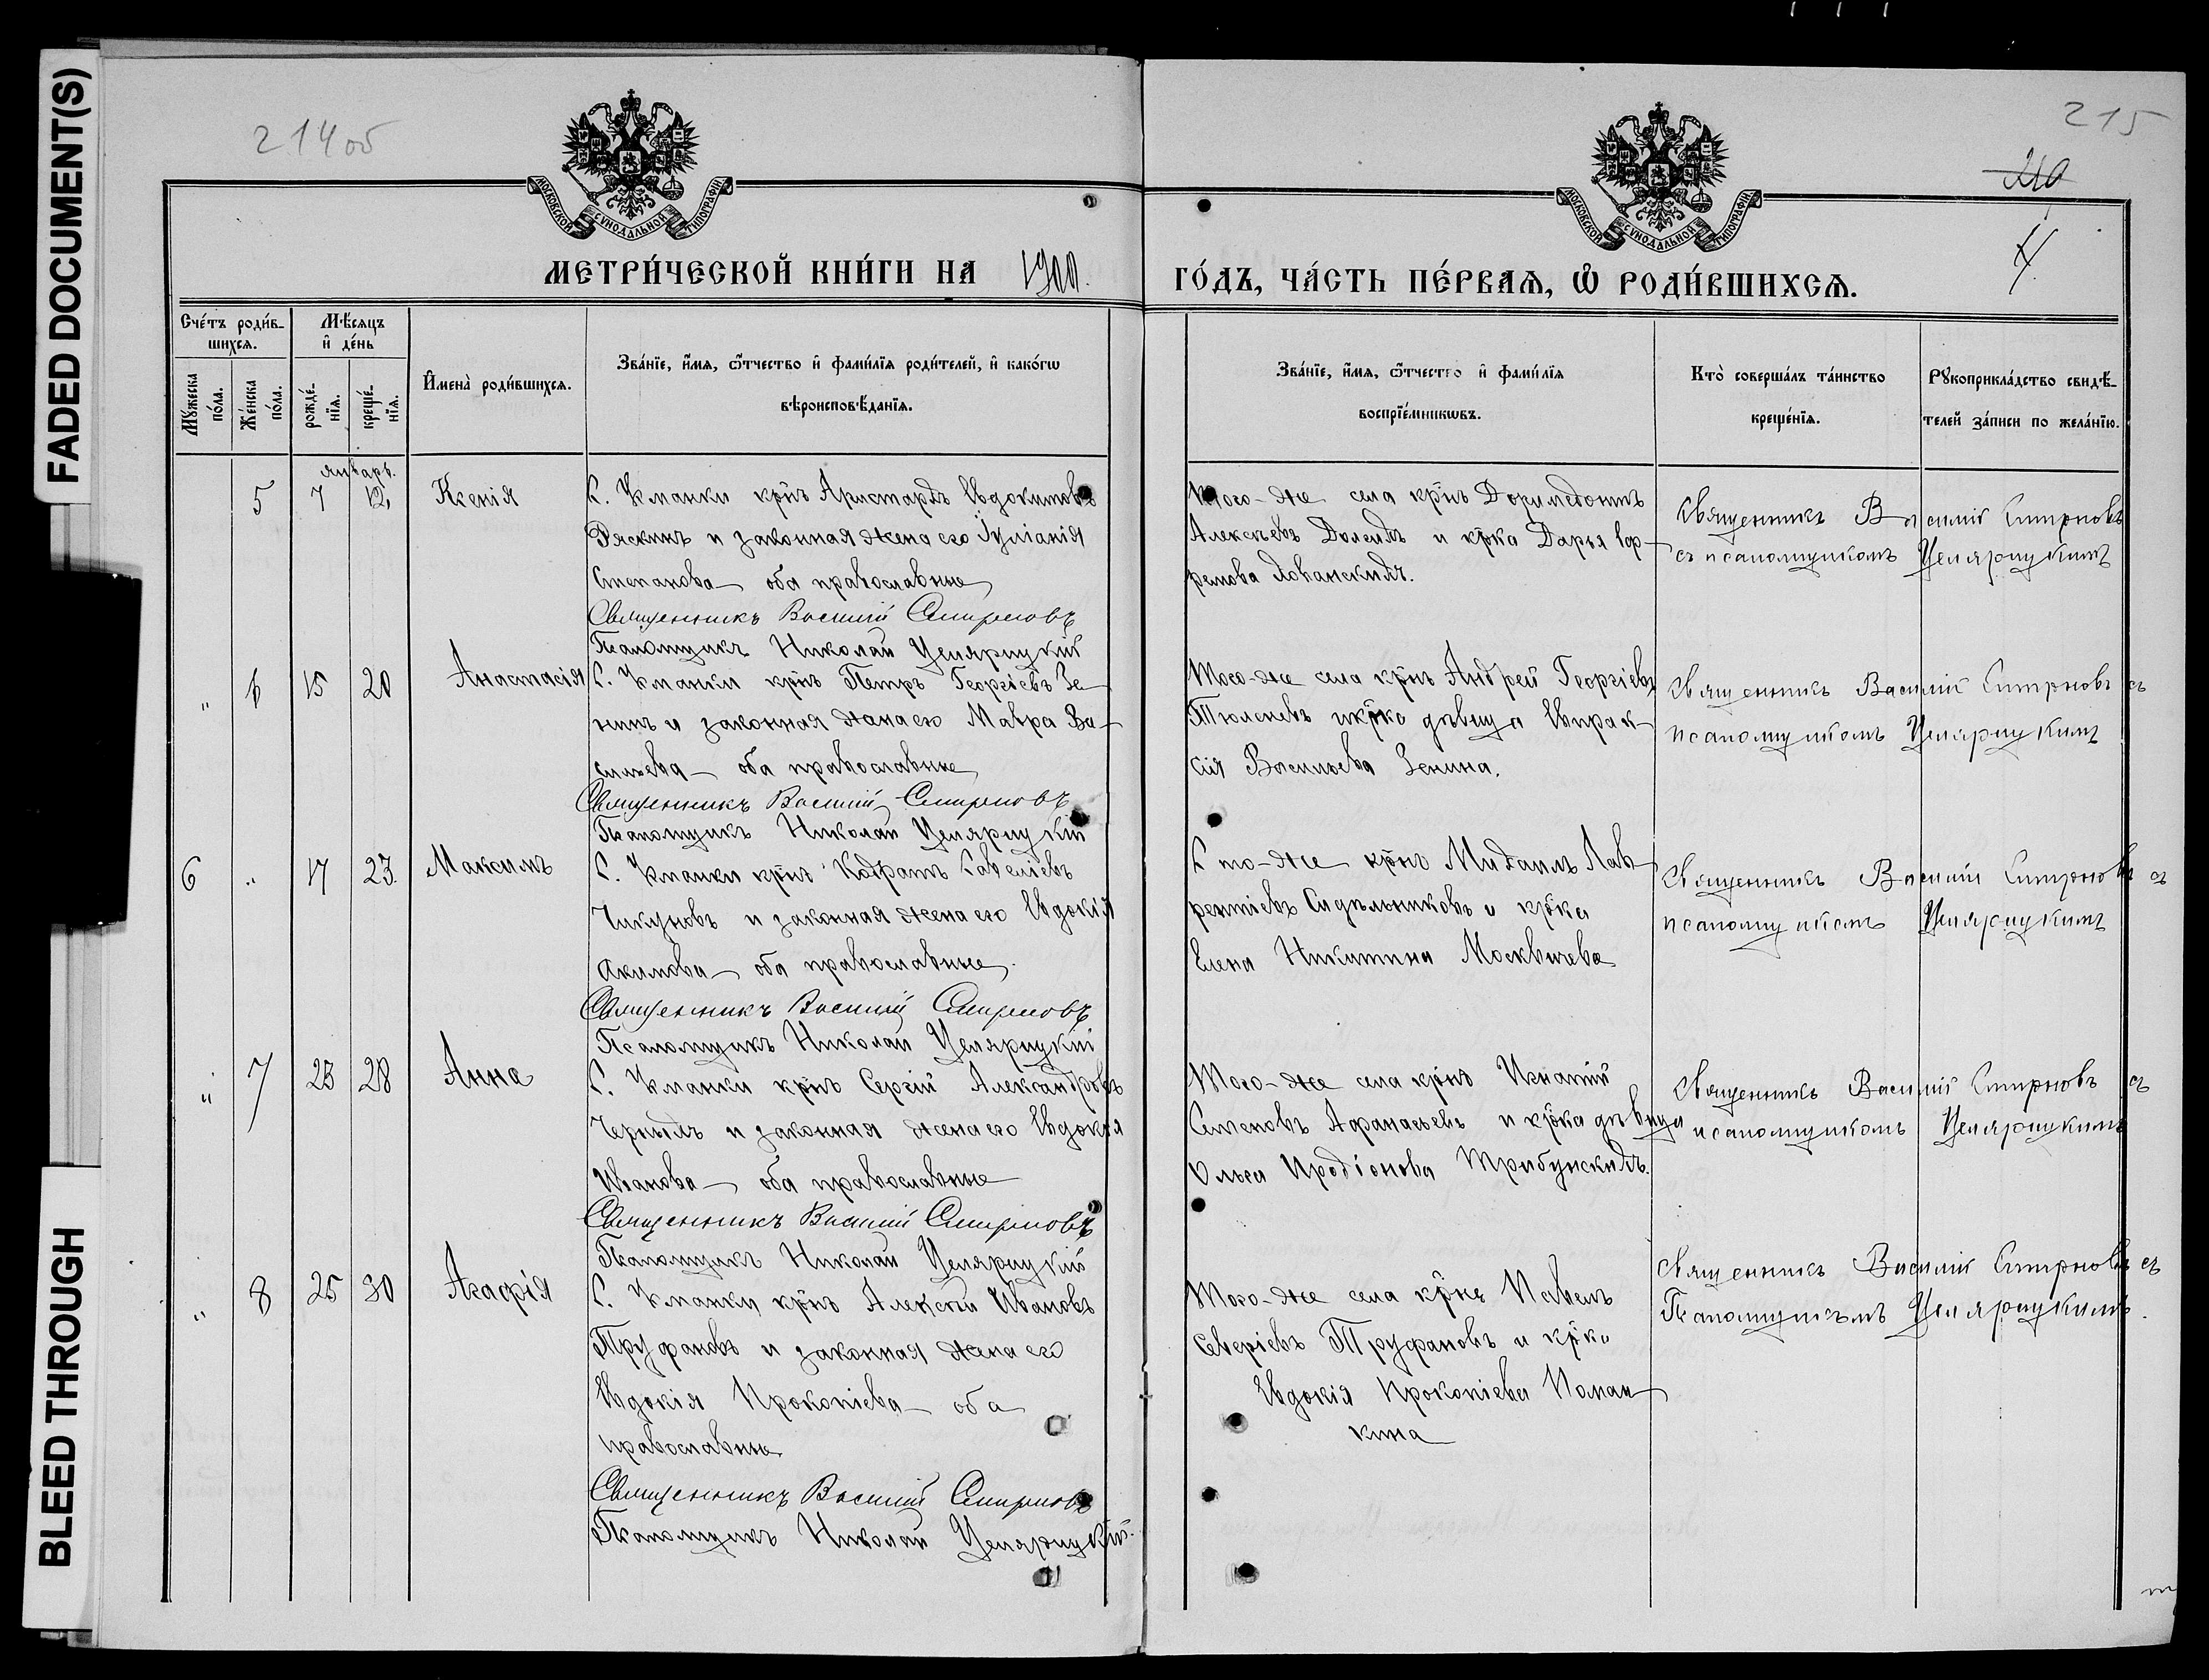 FADED DOCUMENT(S)
BLEED THROUGH
214 об
215
210
4
МОСКОВСКОЙ СѴНОДАЛЬНОЙ ТИПОГРАФІИ.
МОСКОВСКОЙ СѴНОДАЛЬНОЙ ТИПОГРАФІИ.
МЕТРИ́ЧЕСКОЙ КНИ́ГИ НА 1900. ГО́ДЪ, ЧА́СТЬ ПЕ́РВАѦ, Ѽ РОДИ́ВШИХСѦ.
Сче́тъ роди́в-
шихсѧ.
Мꙋ́жеска
по́ла.
Же́нска
по́ла.
Мѣ́сѧцъ
и҆ де́нь
рожде́-
нїѧ.
креще́-
нїѧ.
И҆мена̀ роди́вшихсѧ.
Зва́нїе, и҆́мѧ, ѻ҆́тчество и҆ фами́лїѧ роди́телей, и҆ како́гѡ
вѣроисповѣ́данїѧ.
Зва́нїе, и҆́мѧ, ѻ҆́тчество и҆ фами́лїѧ
воспрїе́мникѡвъ.
Кто̀ соверша́лъ та́инство
креще́нїѧ.
Рꙋкоприкла́дство свидѣ́-
телей за́писи по жела́нїю.
январь.
5 7 12 Ксенія
С. Уманки крнъ Аристархъ Евдокимовъ
Ряскинъ и законная жена его Іуліанія
Степанова – оба православные
Священникъ Василій Смирновъ
Псаломщикъ Николай Целярицкій
Того-же села крнъ Доримедонтъ
Алексѣевъ и крка Дарья Еф-
ремова
Священникъ Василій Смирновъ
съ псаломщикомъ Целярицкимъ
" 6 15 20 Анастасія
С. Уманки крнъ Петръ Георгіевъ Зе-
нинъ и законная жена его Мавра Ва-
сильева – оба православные
Священникъ Василій Смирновъ
Псаломщикъ Николай Целярицкій
Того-же села крнъ Андрей Георгіевъ
Тюленевъ и крка дѣвица Евпрак-
сія Васильева Зенина.
Священникъ Василій Смирновъ съ
псаломщикомъ Целярицкимъ
6 " 17 23. Максимъ
С. Уманки крнъ Кодратъ Савеліевъ
Чикуновъ и законная жена его Евдокія
Акимова – оба православные.
Священникъ Василій Смирновъ
Псаломщикъ Николай Целярицкій
С то-же крнъ Михаилъ Лав-
рентіевъ Сидельниковъ и крка
Елена Никитина Москвичева
Священникъ Василій Смирновъ съ
псаломщикомъ Целярицкимъ
" 7 23 28 Анна
С. Уманки крнъ Сергій Александровъ
Черныхъ и законная жена его Евдокія
Иванова – оба православные
Священникъ Василій Смирновъ
Псаломщикъ Николай Целярицкій
Того-же села крнъ Игнатій
Семеновъ Афанасьевъ и крка дѣвица
Ольга Иродіонова Трибунскихъ.
Священникъ Василій Смирновъ съ
псаломщикомъ Целярицкимъ
" 8 25 30 Агафія
С. Уманки крнъ Алексѣй Ивановъ
Труфановъ и законная жена его
Евдокія Прокопіева – оба
православные
Священникъ Василій Смирновъ
Псаломщикъ Николай Целярицкій.
Того-же села крнъ Павелъ
Северіевъ Труфановъ и крка
Евдокія Прокопіева Поман-
кина
Священникъ Василій Смирновъ съ
Псаломщикомъ Целярицкимъ.